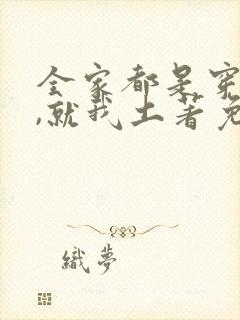 全家都是穿
,就我土著免
織夢